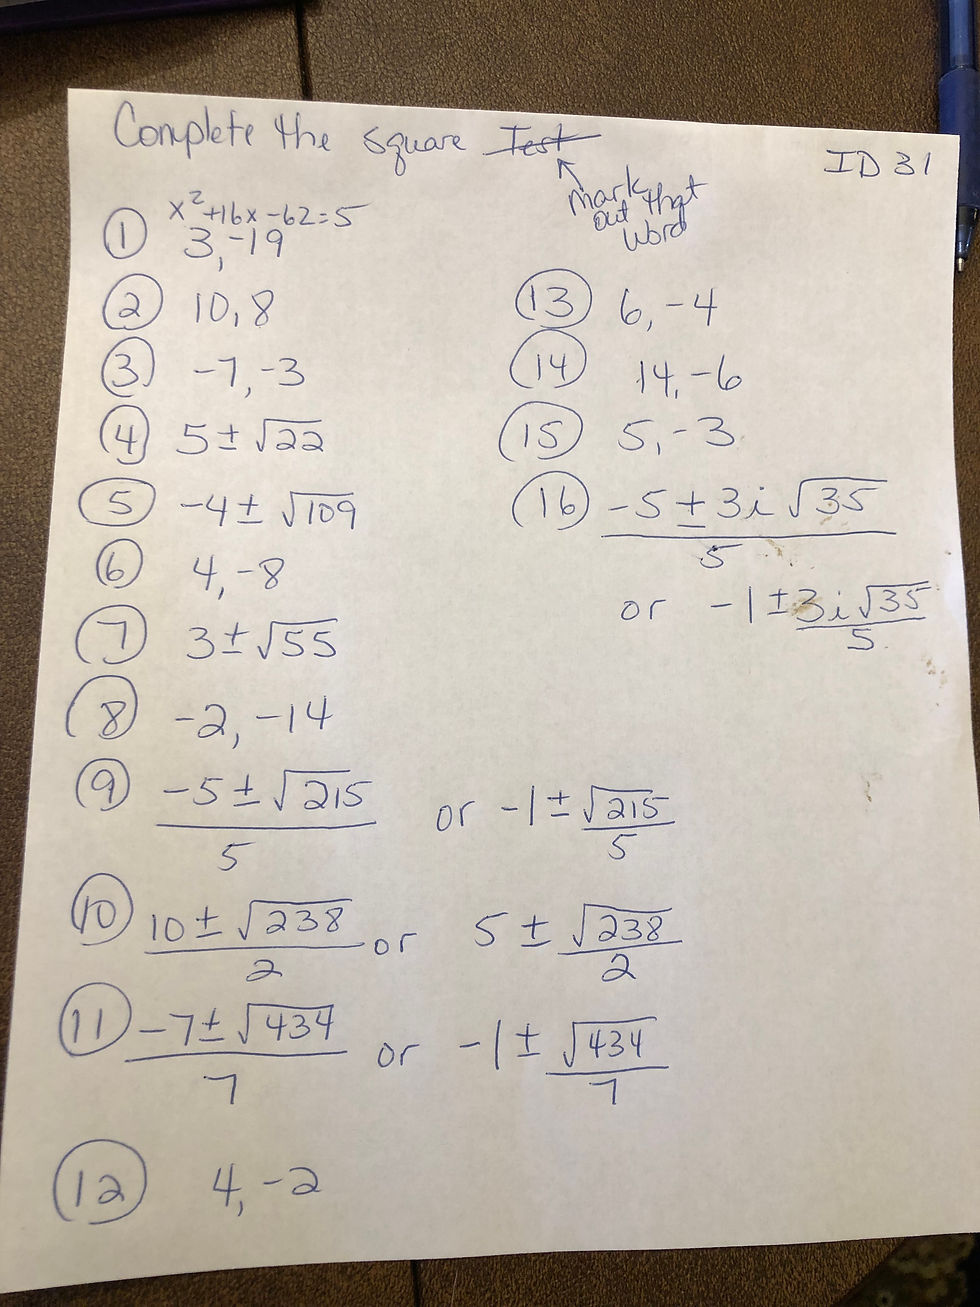 Complete the square Test
ID 31
mark that
out
word
① x²+16x-62=5
3,-19
② 10,8
③ -7,-3
④ 5±√22
⑤ -4±√109
⑥ 4,-8
⑦ 3±√55
⑧ -2,-14
⑨ -5±√215 or -1±√215
5 5
⑩ 10±√238 or 5±√238
2 2
⑪ -7±√434 or -1±√434
7 7
⑫ 4,-2
⑬ 6,-4
⑭ 14,-6
⑮ 5,-3
⑯ -5±3i√35
5
or -1±3i√35
5